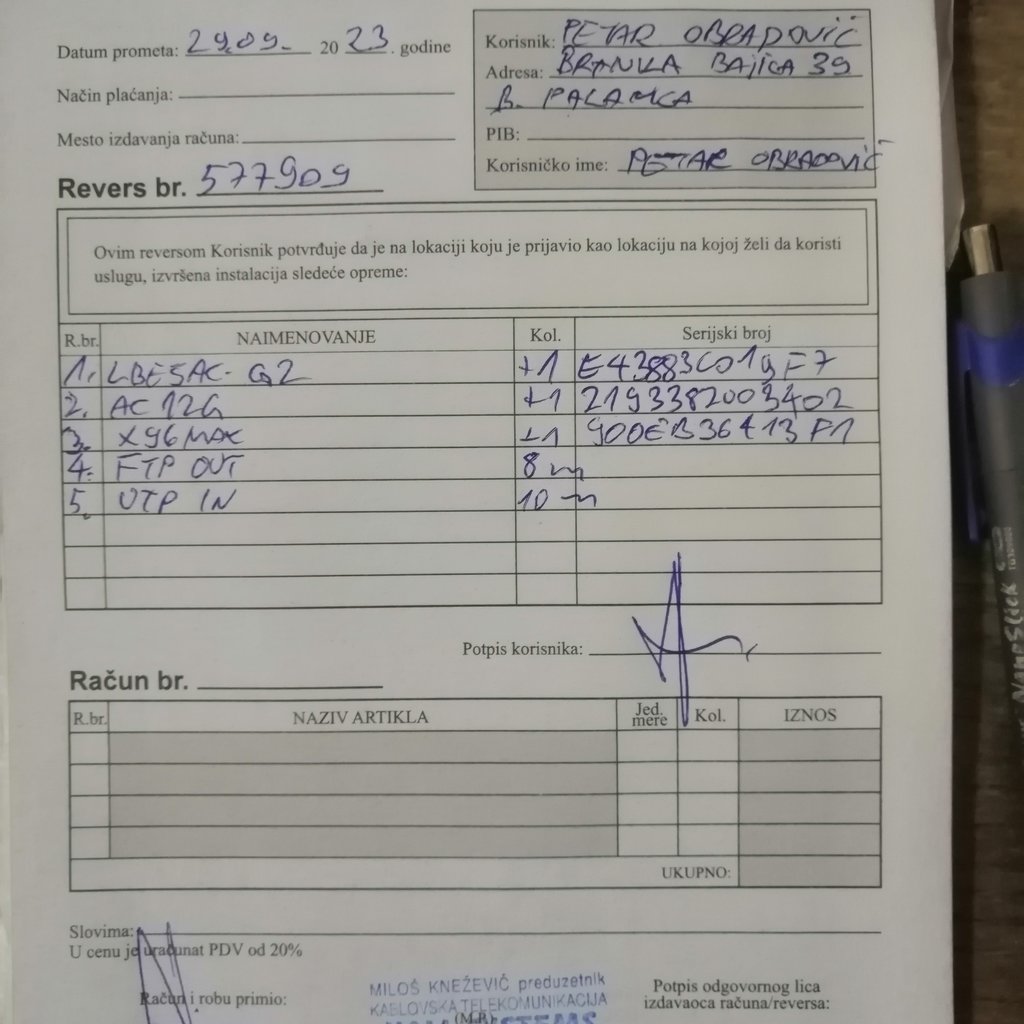 Datum prometa: 29.09. 2023. godine
Način plaćanja:
Mesto izdavanja računa:
Revers br. 577909
Korisnik: PETAR OBRADOVIĆ
Adresa: BRANKA BAJIĆA 39
B. PALANKA
PIB:
Korisničko ime: PETAR OBRADOVIĆ
Ovim reversom Korisnik potvrđuje da je na lokaciji koju je prijavio kao lokaciju na kojoj želi da koristi
uslugu, izvršena instalacija sledeće opreme:
R.br. NAIMENOVANJE Kol. Serijski broj
1. LBE5AC-G2 +1 E43883C019F7
2. AC12G +1 2193382003402
3. X96MAX +1 900EB36413F1
4. FTP OUT 8 m
5. UTP IN 10 m
Potpis korisnika:
Račun br.
R.br. NAZIV ARTIKLA Jed. mere Kol. IZNOS
UKUPNO:
Slovima:
U cenu je uračunat PDV od 20%
Račun i robu primio:
MILOŠ KNEŽEVIĆ preduzetnik
KABLOVSKA TELEKOMUNIKACIJA
(M.P.)
Potpis odgovornog lica
izdavaoca računa/reversa: